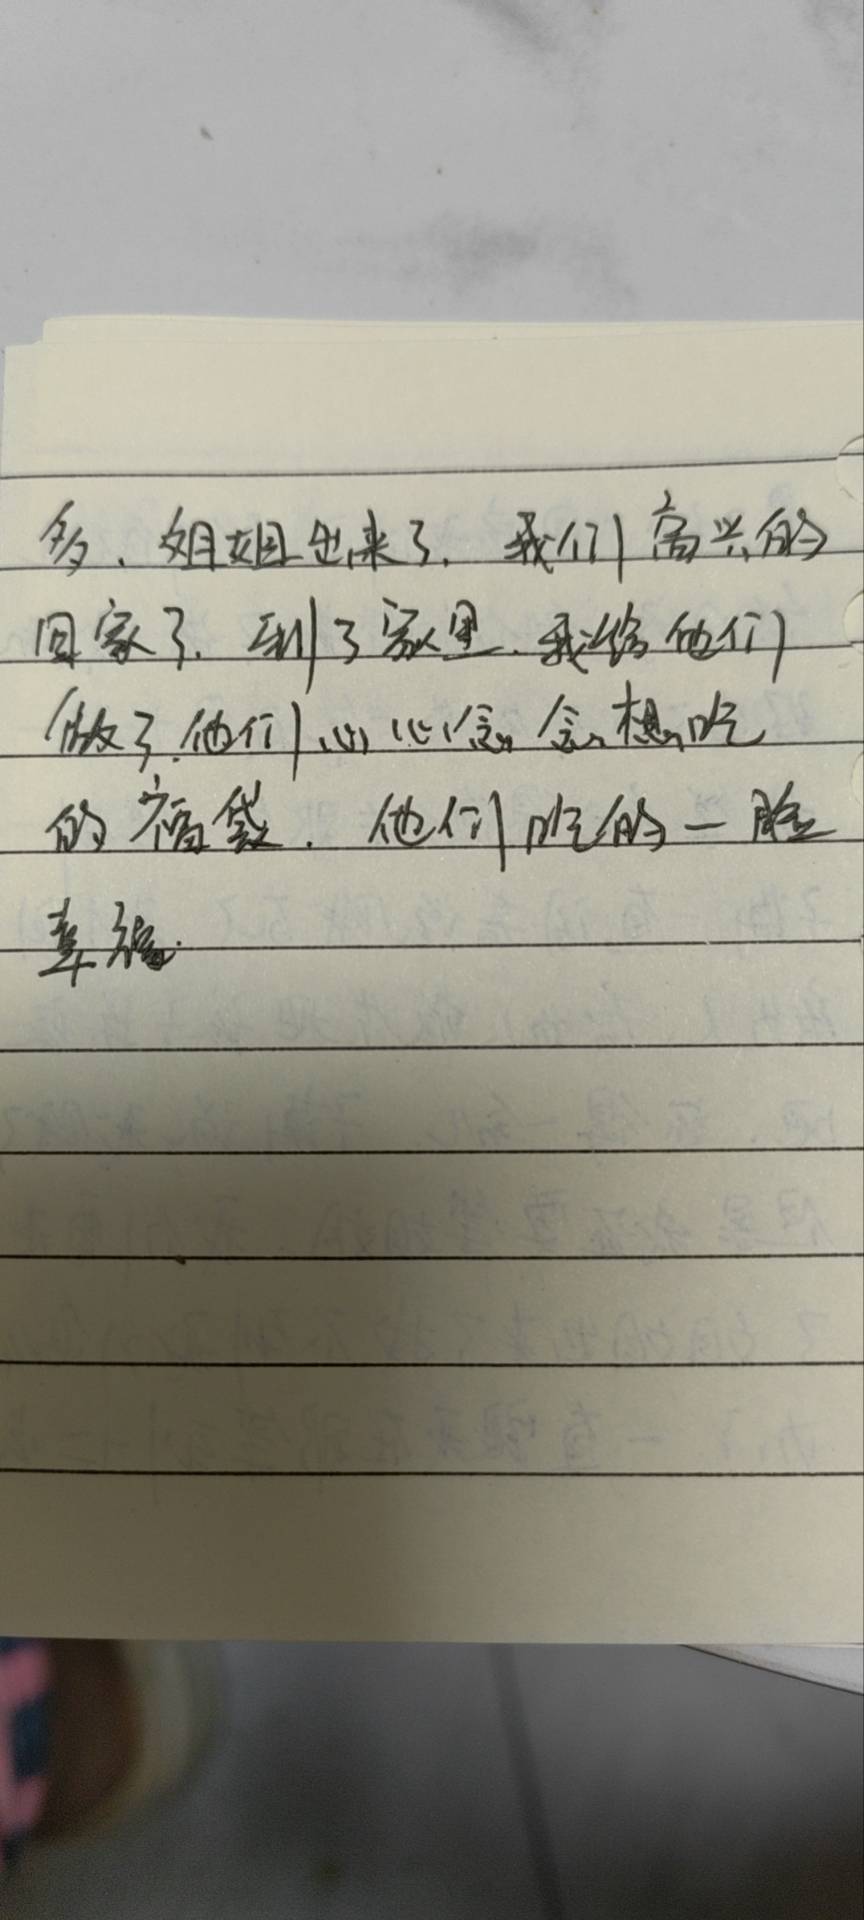 多、姐姐出来了. 我们高兴的
回家了. 到了家里、我给他们
做了他们心心念念想吃
的福袋. 他们吃的一脸
幸福.